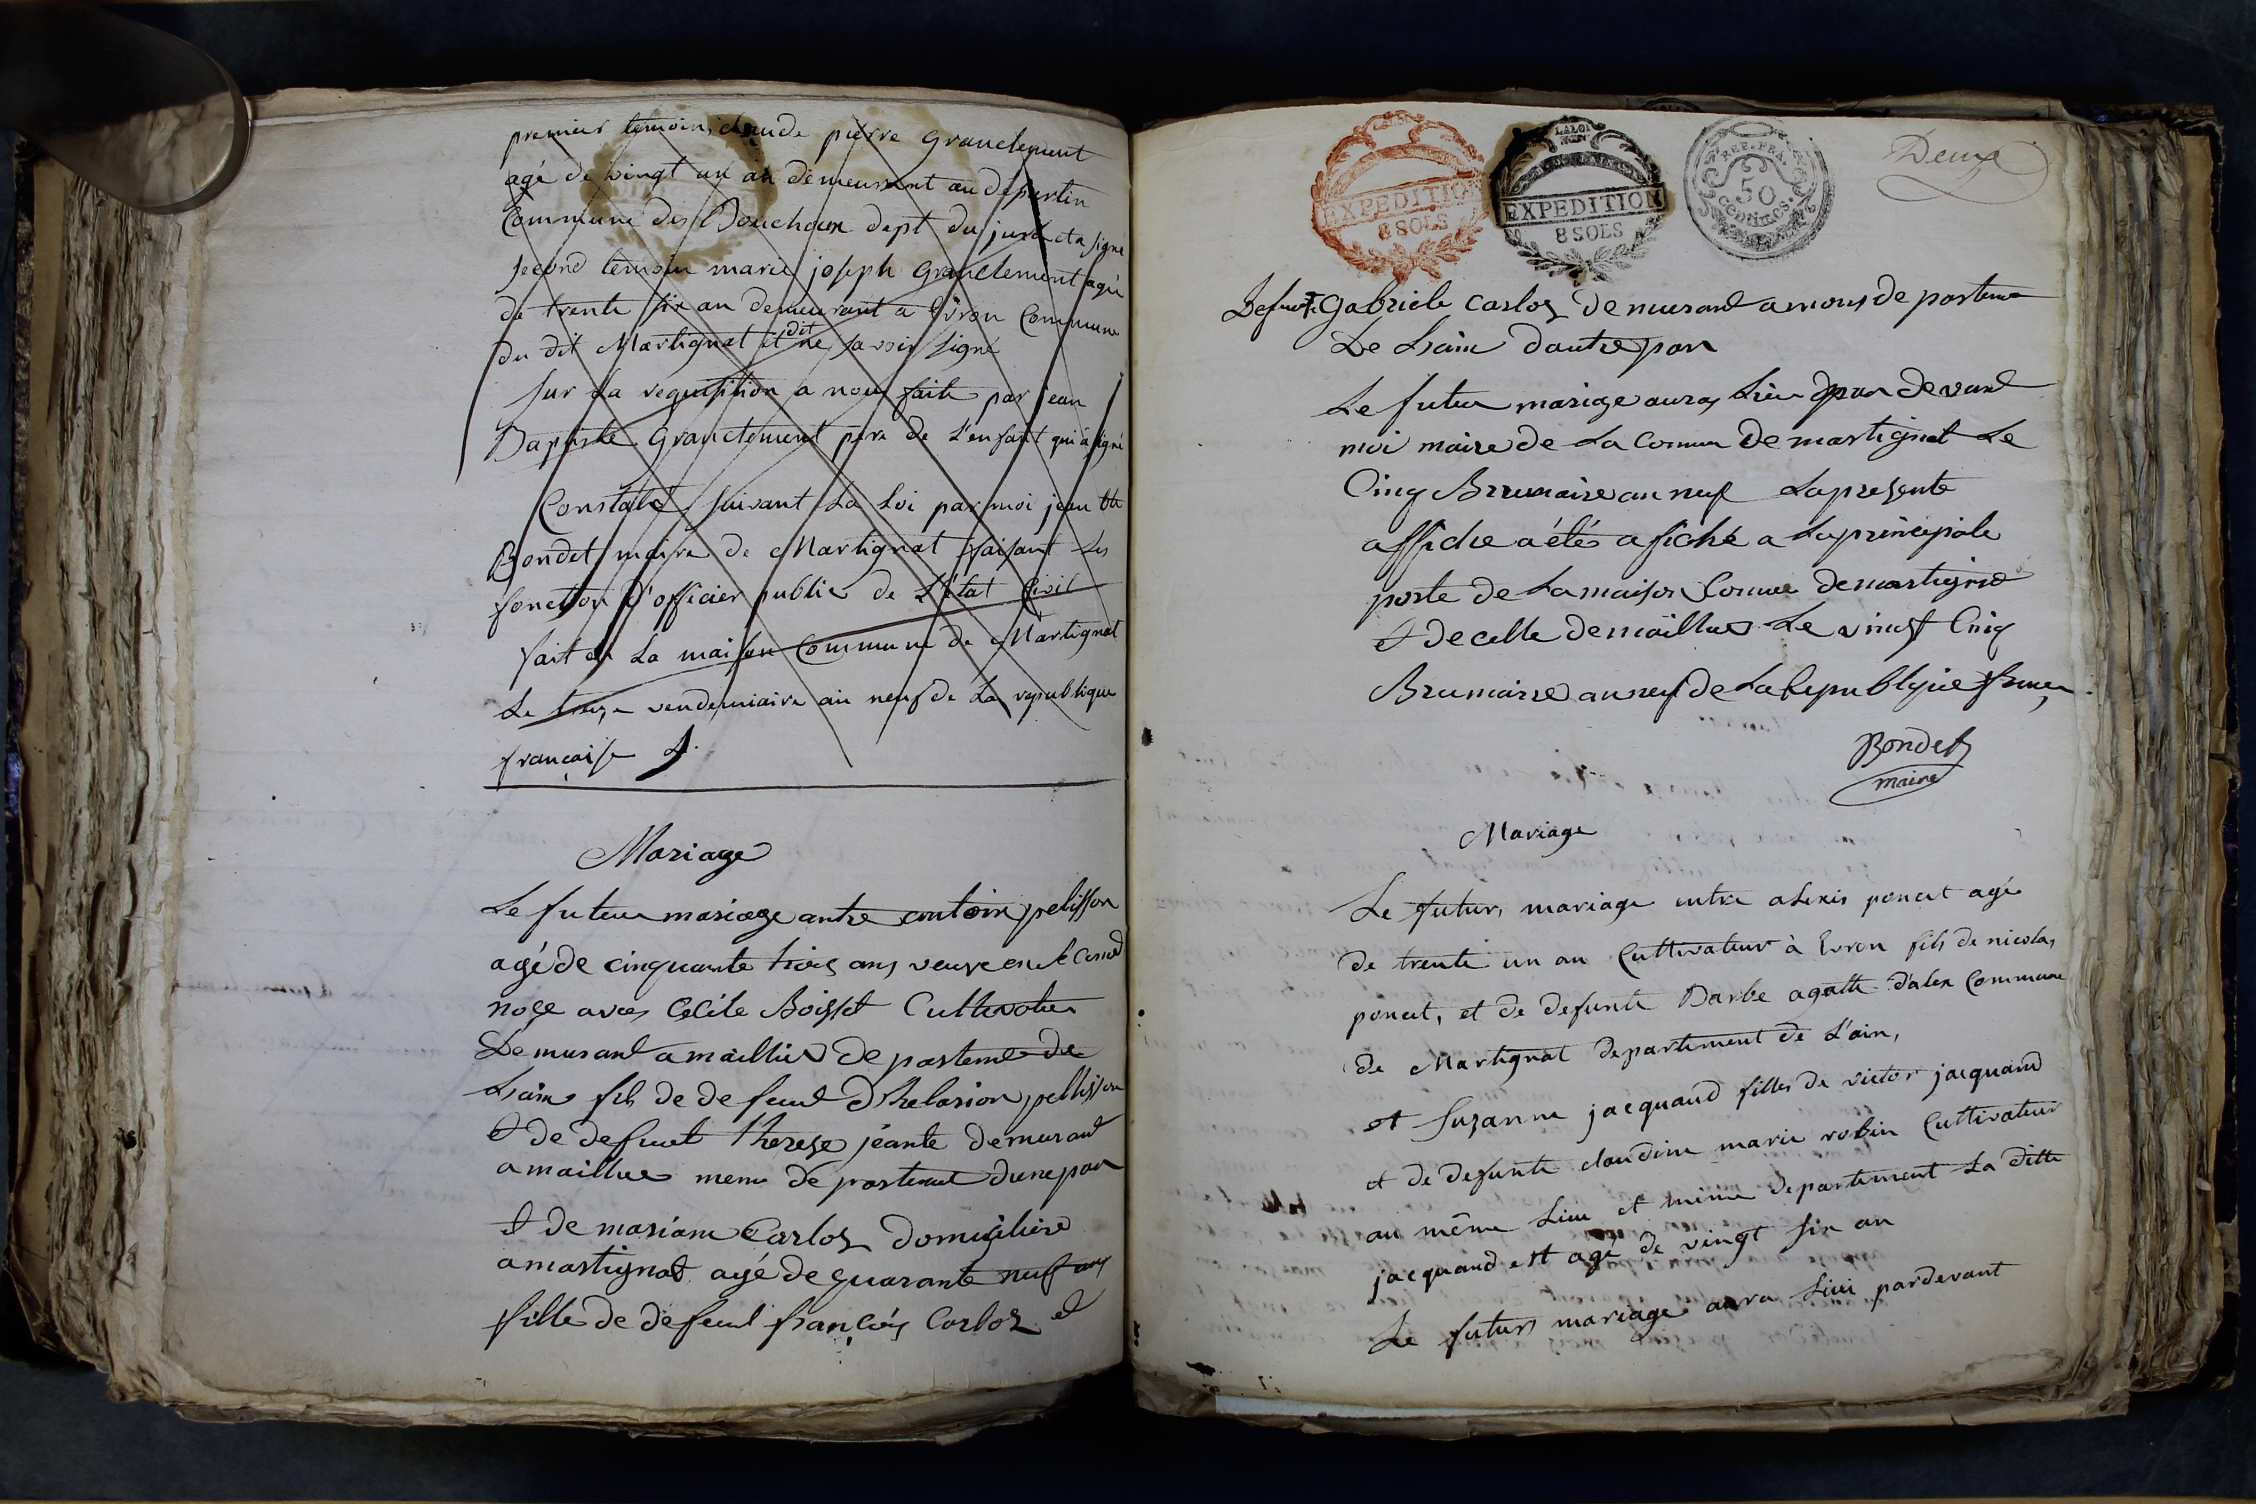 premier temoin, claude pierre Granclement
agé de vingt un an demeurant au departin
Commune des Bouchoux dept du jura et a signé
second temoin marie joseph Granclement agé
de trente six an demeurant a Evron Commune
du dit Martignat et dit ne savoir signé
sur la requisition a nous faite par jean
Baptiste Granclement pere de l'enfant qui à signé
Constaté suivant La Loi par moi jean bte
Bondet maire de Martignat faisant Les
fonction d'officier public de L'état Civil
fait en La maison Commune de Martignat
Le treize vendemiaire an neuf de La republique
française
Mariage
Le futeur mariage antre antoin pelisson
agé de cinquante trois ans veuve en Segond
nose avec Cecile Boisset Cultivateur
Demurant a maillia departemt de
Lain fils de defunt helarion pellisson
et de defunt therese jéante demurant
a maillia meme departement dune par
et de mariane Carloz domiciliere
a martignat agé de quarante neuf ans
fille de defunt françois Carloz et
EXPEDITION
8 SOLS
LA LOI
EXPEDITION
8 SOLS
REP. FRA.
50
CENTMES.
Deux
Defunte Gabriele Carloz demurant a mons de parteme
De Lain d'autre par
Le futeur mariage auras Lieu par devant
moi maire de La Comun de martignat Le
Cinq Brumaire an neuf La presente
affiche a été afiché a La prinsipale
porte de La maison Comue de martignat
et de celle de maillia Le vingt Cinq
Brumaire an neuf de La Republique
Bondet
maire
Mariage
Le futur mariage entre alexis poncet agé
de trente un an Cultivateur à Evron fils de nicolas
poncet, et de defunte Barbe agatte d'alex Commune
de Martignat departement de L'ain,
et Suzanne jacquand filles de victor jacquand
et de defunte claudine marie robin Cultivateur
au même Lieu et même departement La ditte
jacquand est agé de vingt six an
Le futurs mariage aura Lieu pardevant